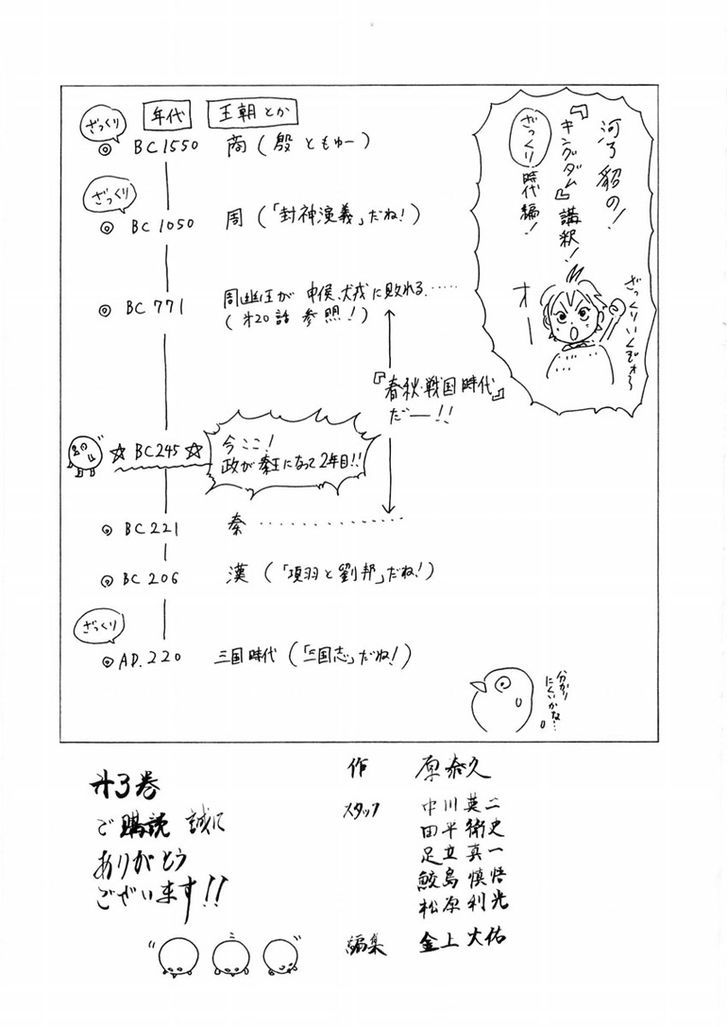 河了貂の!
『キングダム』講釈!
ざっくり時代編!
ざっくりいくぞォ〜
オー
年代 王朝とか
ざっくり
◎ BC1550 商(殷ともゆー)
ざっくり
◎ BC1050 周(「封神演義」だね!)
◎ BC771 周幽王が申侯、犬戎に敗れる……
(㐧20話参照!)
『春秋・戦国時代』
だー!!
☆BC245☆ 今ここ!
政が秦王になって2年目!!
◎ BC221 秦……………
◎ BC206 漢(「項羽と劉邦」だね!)
ざっくり
◎ AD.220 三国時代(「三国志」だね!)
分かり
にくいかな…
㐧3巻
ご購読 誠に
ありがとう
ございます!!
作 原泰久
スタッフ 中川英二
田平衛史
足立真一
鮫島慎悟
松原利光
編集 金上大佑